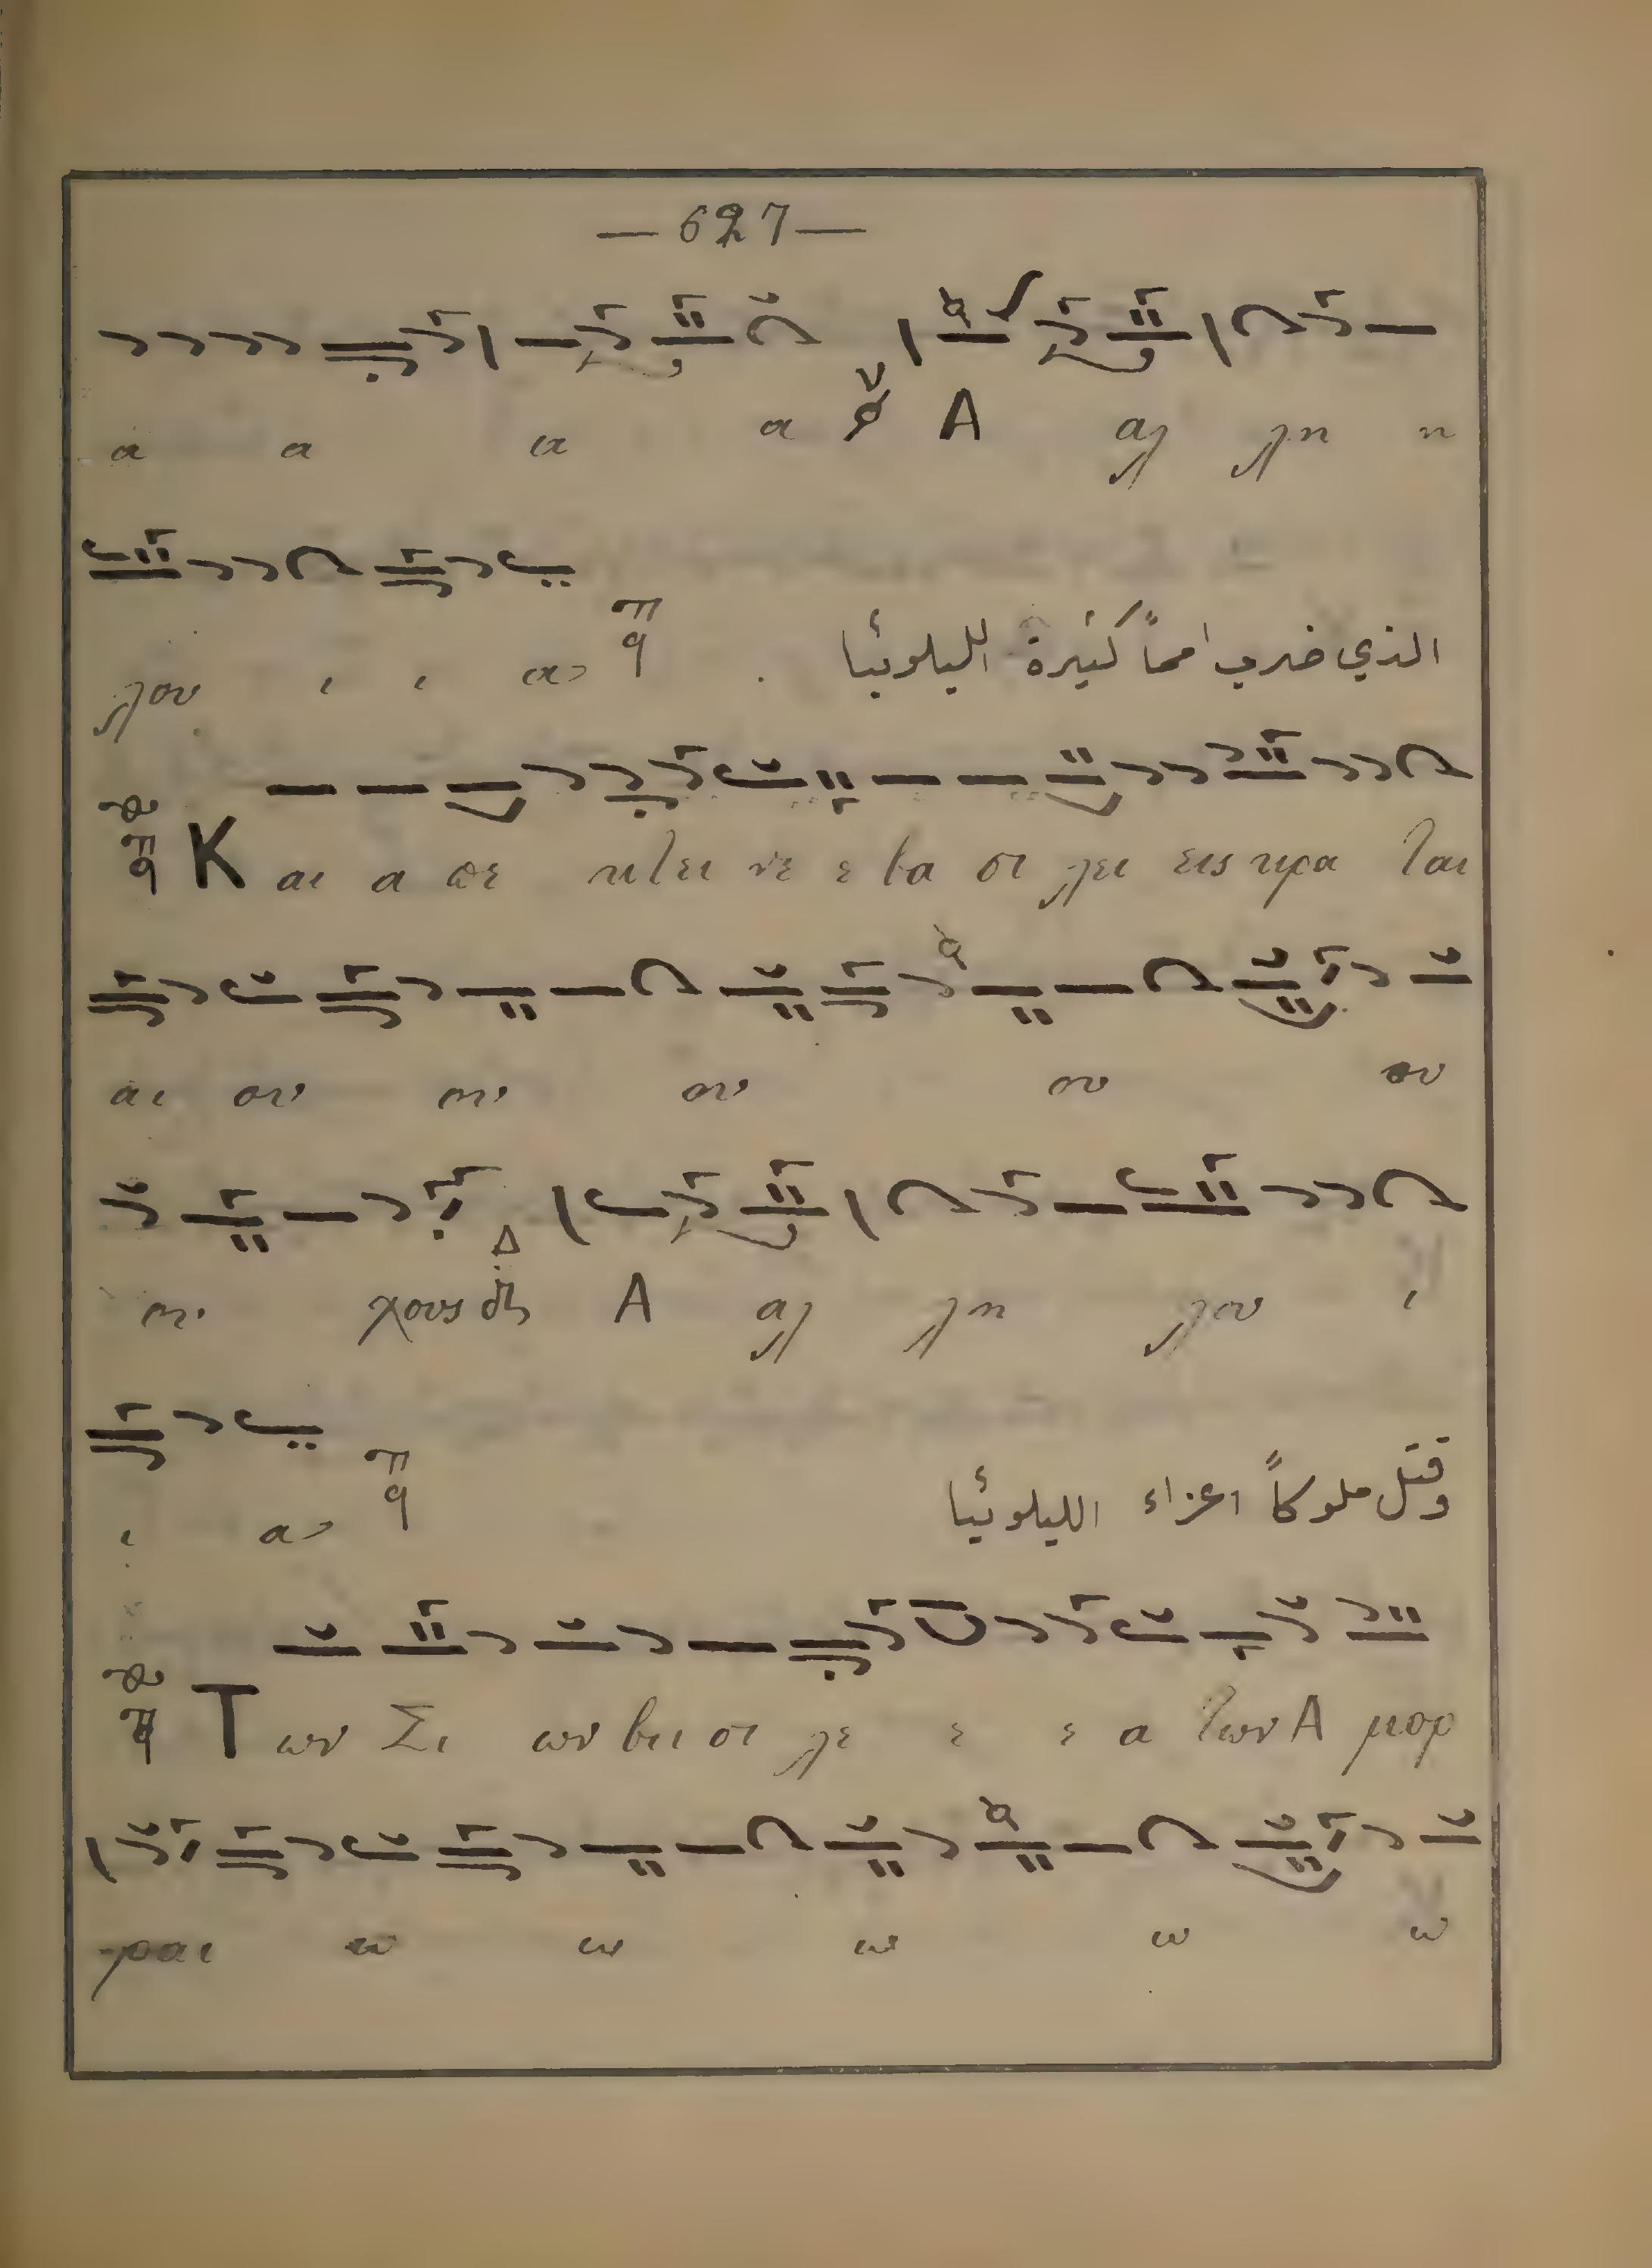 — 627 —
α α α α Α αλ λη η
λου ι ι α
الذي ضرب امماً كثيرة الليلوئيا
Κ αι α πε κτει νε ε βα σι λει εις κρα ται
αι ου ου ου ου ου
ου χους Α αλ λη λου ι
ι α
وقتل ملوكاً اعزاء الليلوئيا
Τ ων Σι ων βα σι λε ε ε α των Α μορ
ραι ω ω ω ω ω